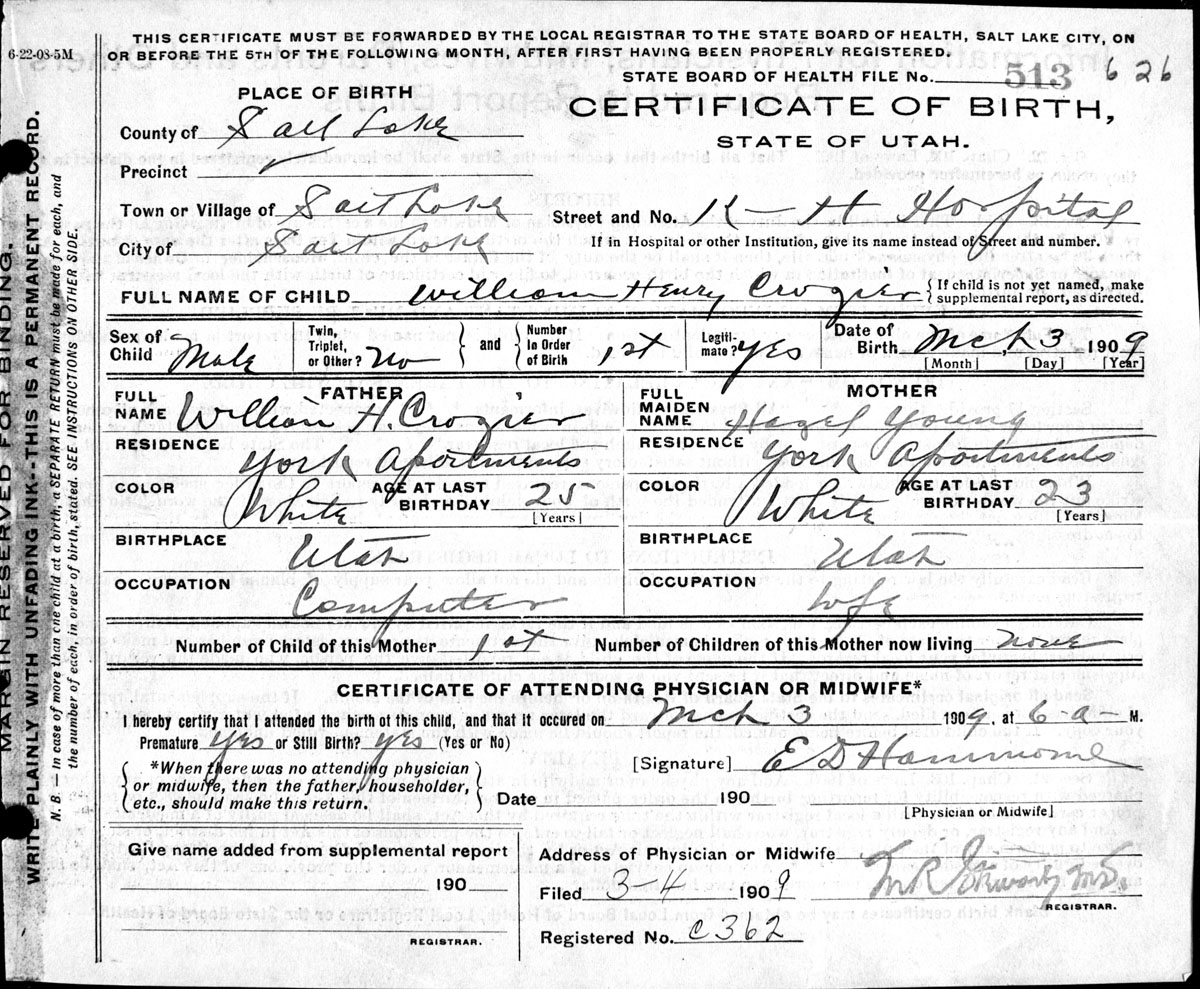 6-22-08-5M
THIS CERTIFICATE MUST BE FORWARDED BY THE LOCAL REGISTRAR TO THE STATE BOARD OF HEALTH, SALT LAKE CITY, ON
OR BEFORE THE 5TH OF THE FOLLOWING MONTH, AFTER FIRST HAVING BEEN PROPERLY REGISTERED.
STATE BOARD OF HEALTH FILE No. 513 626
PLACE OF BIRTH
CERTIFICATE OF BIRTH,
STATE OF UTAH.
County of Salt Lake
Precinct
Town or Village of Salt Lake Street and No. K-H Hospital
City of Salt Lake If in Hospital or other Institution, give its name instead of Street and number.
FULL NAME OF CHILD William Henry Crozier {If child is not yet named, make
supplemental report, as directed.
Sex of Child Male Twin, Triplet, or Other? No } and { Number In Order of Birth 1st Legiti-mate? yes Date of Birth Mch, 3 1909
[Month] [Day] [Year]
FATHER MOTHER
FULL NAME William H. Crozier FULL MAIDEN NAME Hazel Young
RESIDENCE York Apartments RESIDENCE York Apartments
COLOR White AGE AT LAST BIRTHDAY 25 [Years] COLOR White AGE AT LAST BIRTHDAY 23 [Years]
BIRTHPLACE Utah BIRTHPLACE Utah
OCCUPATION Computer OCCUPATION wfe
Number of Child of this Mother 1st Number of Children of this Mother now living none
CERTIFICATE OF ATTENDING PHYSICIAN OR MIDWIFE*
I hereby certify that I attended the birth of this child, and that it occured on Mch 3 1909, at 6-a-M.
Premature yes or Still Birth? yes (Yes or No)
[Signature] E D Hammond
{*When there was no attending physician
or midwife, then the father, householder,
etc., should make this return.}
Date 190
[Physician or Midwife]
Give name added from supplemental report
190
REGISTRAR.
Address of Physician or Midwife
Filed 3-4 1909 M.D.
REGISTRAR.
Registered No. C362
MARGIN RESERVED FOR BINDING.
WRITE PLAINLY WITH UNFADING INK--THIS IS A PERMANENT RECORD.
N. B. In case of more than one child at a birth, a SEPARATE RETURN must be made for each, and
the number of each, in order of birth, stated. SEE INSTRUCTION ON OTHER SIDE.